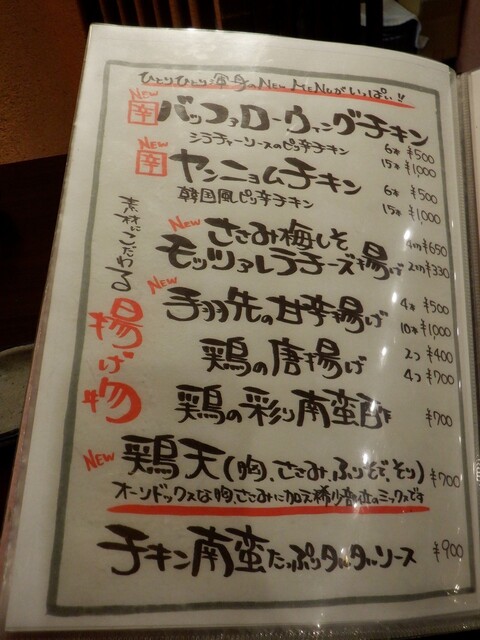 ひとりひとり渾身のNEW MENUがいっぱい!!
NEW
辛 バッファローウィングチキン
シラチャーソースのピリ辛チキン
6本 ¥500
15本 ¥1,000
NEW
辛 ヤンニョムチキン
韓国風ピリ辛チキン
6本 ¥500
15本 ¥1,000
素材にこだわる
揚げ物
NEW
ささみ梅しそ
モッツァレラチーズ揚げ
4切 ¥650
2切 ¥330
NEW
手羽先の甘辛揚げ
4本 ¥500
10本 ¥1,000
鶏の唐揚げ
2つ ¥400
4つ ¥700
鶏の彩り南蛮酢
¥700
NEW
鶏天(胸、ささみ、ふりそで、そり) ¥700
オーソドックスな胸、ささみに加え稀少部位のミックスです
チキン南蛮たっぷりタルタルソース ¥900